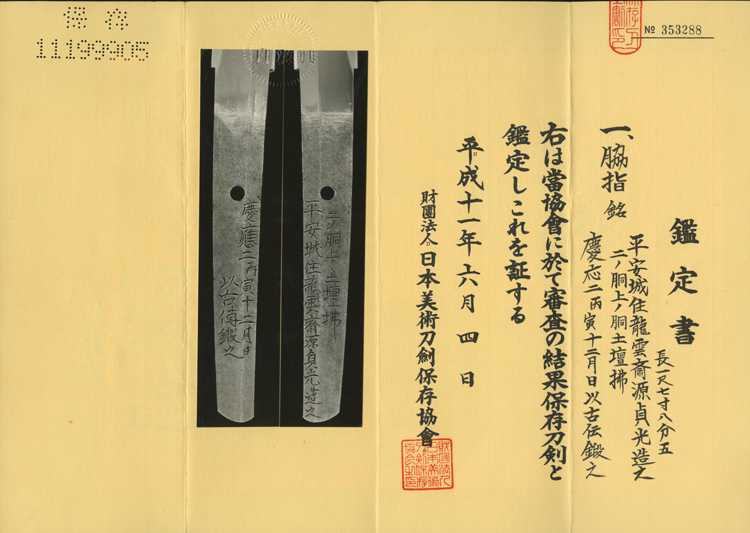 保存
11199905
№ 353288
鑑定書
一、脇指 銘
長一尺七寸八分五
平安城住龍雲斎源貞光造之
二ノ胴上ノ胴土壇拂
慶応二丙寅十二月日以古伝鍛之
右は當協會に於て審査の結果保存刀剣と
鑑定しこれを証する
平成十一年六月四日
財團法人日本美術刀剣保存協會
平安城住龍雲斎源貞光造之
慶應二丙寅十二月日
以古傳鍛之